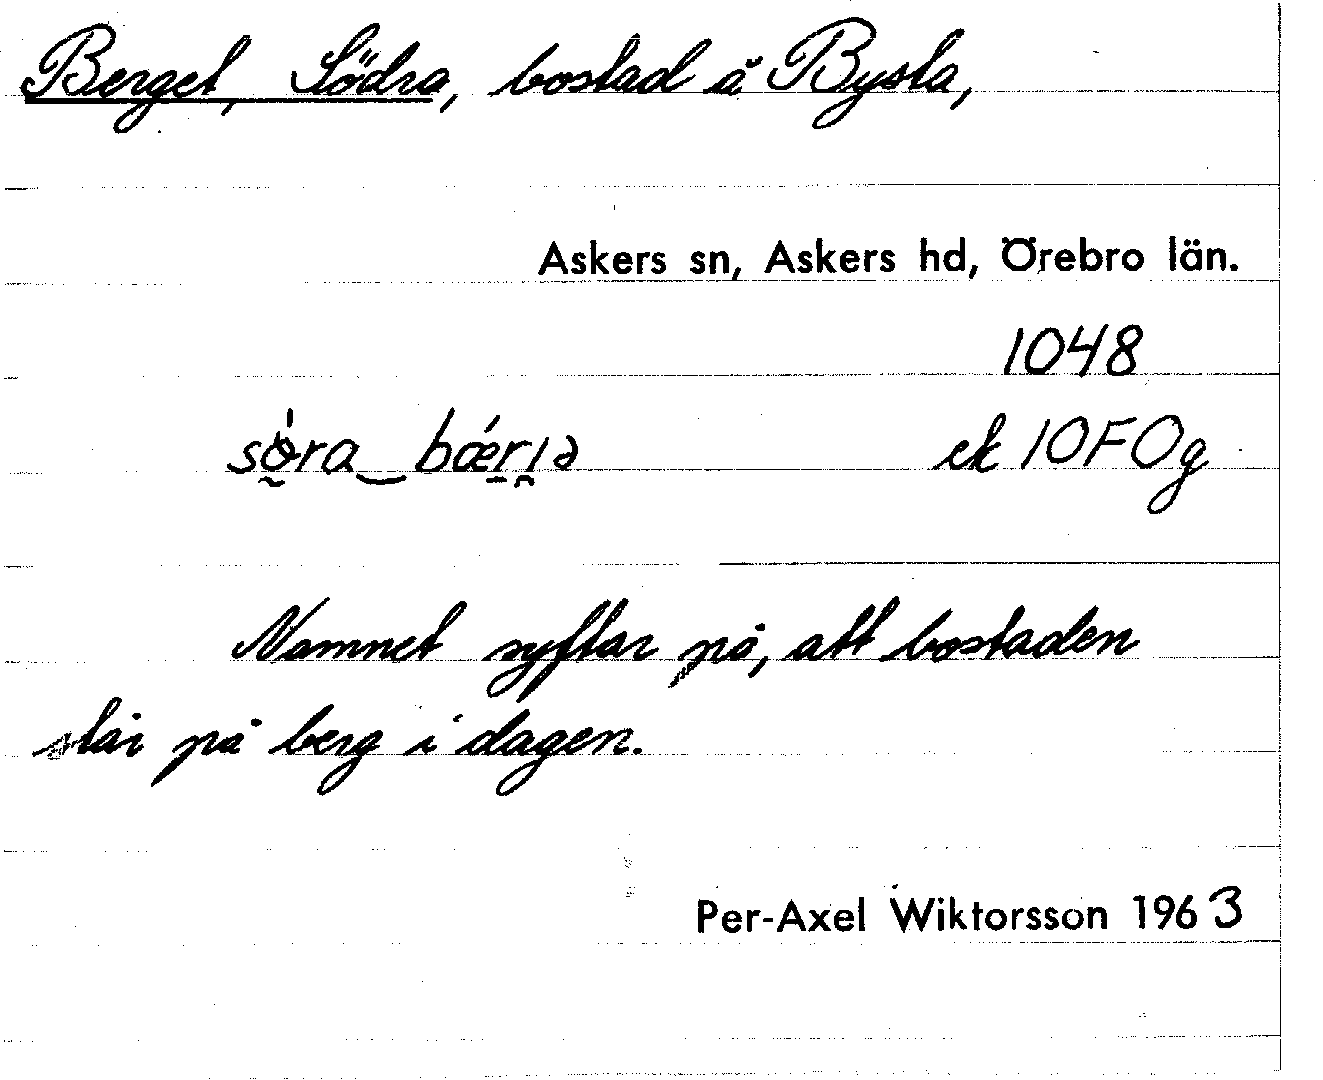 Berget, Södra, bostad å Bysta,
Askers sn, Askers hd, Örebro län.
1048
sö́ra‿bǽrıə ek 10F0g
Namnet syftar på, att bostaden
står på berg i dagen.
Per-Axel Wiktorsson 1963